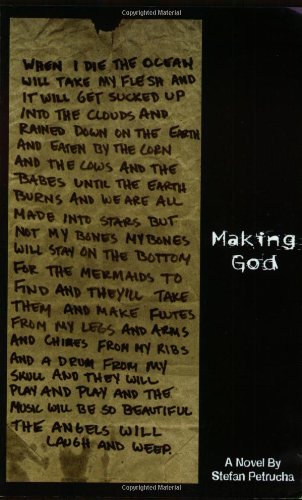 Copyrighted Material
WHEN I DIE THE OCEAN
WILL TAKE MY FLESH AND
IT WILL GET SUCKED UP
INTO THE CLOUDS AND
RAINED DOWN ON THE EARTH
AND EATEN BY THE CORN
AND THE COWS AND THE
BABES UNTIL THE EARTH
BURNS AND WE ARE ALL
MADE INTO STARS BUT
NOT MY BONES MY BONES
WILL STAY ON THE BOTTOM
FOR THE MERMAIDS TO
FIND AND THEY'LL TAKE
THEM AND MAKE FLUTES
FROM MY LEGS AND ARMS
AND CHIMES FROM MY RIBS
AND A DRUM FROM MY
SKULL AND THEY WILL
PLAY AND PLAY AND THE
MUSIC WILL BE SO BEAUTIFUL
THE ANGELS WILL
LAUGH AND WEEP.
Making
God
A Novel By
Stefan Petrucha
Copyrighted Material